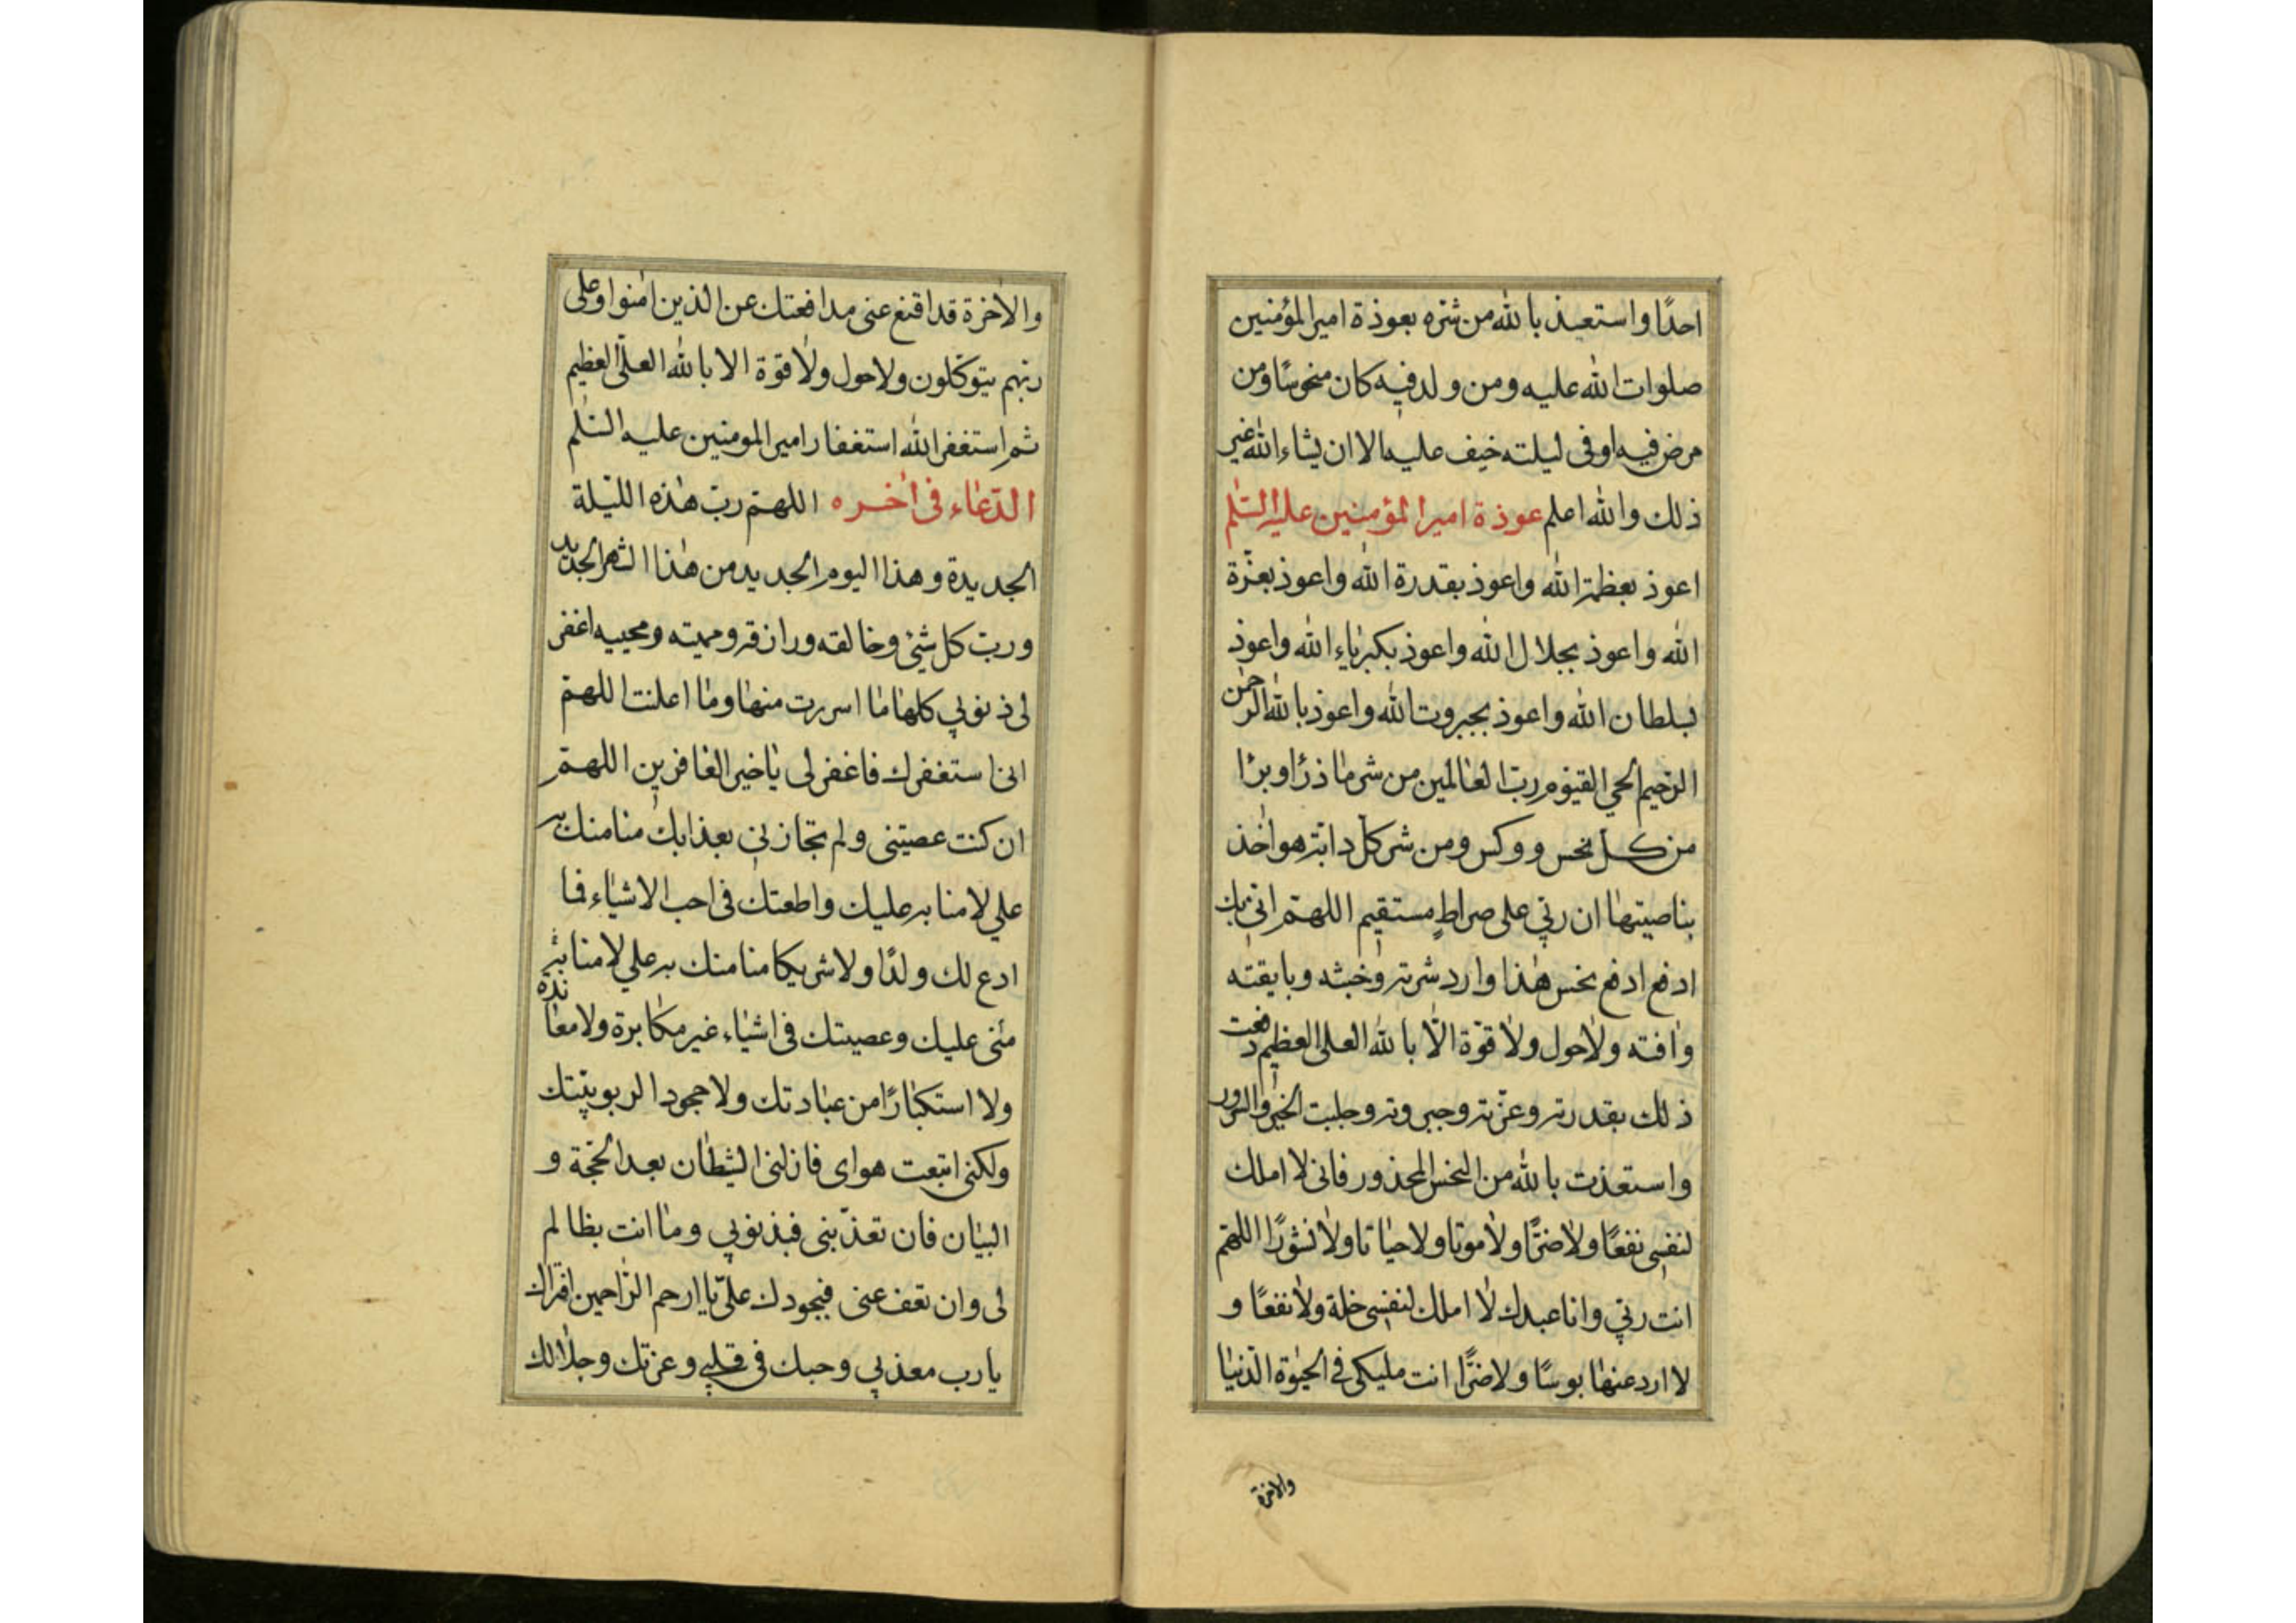 احدًا واستعيذ بالله من شره بعوذة امير المؤمنين
صلوات الله عليه ومن ولد فيه كان منحوسًا ومن
مرض فيه او فى ليلته خيف عليه الا ان يشاء الله غير
ذلك والله اعلم عوذة امير المؤمنين عليه السّلم
اعوذ بعظمة الله واعوذ بقدرة الله واعوذ بعزّة
الله واعوذ بجلال الله واعوذ بكبرياء الله واعوذ
بسلطان الله واعوذ بجبروت الله واعوذ بالله الرحمن
الرّحيم الحي القيّوم ربّ العالمين من شر ما ذرًا وبرًا
من كل نحس ووكس ومن شر كل دابّة هو اخذ
بناصيتها ان ربّي على صراطٍ مستقيم اللهمّ انّي بك
ادفع ادفع نحس هذا وارد شرّته وخبثه وبايقته
وافته ولا حول ولا قوّة الّا بالله العلى العظيم دفعت
ذلك بقدرته وعزّته وجبروته وجلبت الخير والسّرور
واستعذت بالله من النحس المحذور فانى لا املك
لنفسى نفعًا ولا ضرًّا ولا موتا ولا حياتا ولا نشورًا اللهّم
انت ربّي وانا عبدك لا املك لنفسى خلة ولا نفعًا و
لا ارد عنها بوسًا ولا ضرًّا انت مليكى فى الحيوة الدّنيا
والاخرة
والاخرة قد اقنع عنى مدافعتك عن الذين امنوا وعلى
ربّهم يتوكّلون ولا حول ولا قوّة الا بالله العلّى العظيم
ثم استغفر الله استغفار امير المومنين عليه السّلم
الدّعاء فى اخره اللهمّ ربّ هذه اللّيلة
الجديدة وهذا اليوم الجديد من هذا الشّهر الجديد
وربّ كل شئ وخالقه ورازقه ومميته ومحييه اغفر
لى ذنوبي كلها ما اسررت منها وما اعلنت اللهمّ
انى استغفرك فاغفر لى يا خير الغافرين اللهمّ
ان كنت عصيتنى ولم تجازنى بعذابك منا منك به
علي لا منا به عليك واطعتك فى احب الاشياء فما
ادع لك ولدًا ولا شريكا منا منك به علي لا منا به
منّى عليك وعصيتك فى اشياء غير مكابرة ولا معاندة
ولا استكبارًا من عبادتك ولا جحودا لربوبيّتك
ولكنى اتبعت هواى فازلنى الشيطان بعد الحجّة و
البيان فان تعذّبنى فبذنوبي وما انت بظالم
لى وان تعف عنى فبجودك علىّ يا ارحم الرّاحمين افتراك
يا رب معذبي وحبك فى قلبي وعزتك وجلالك